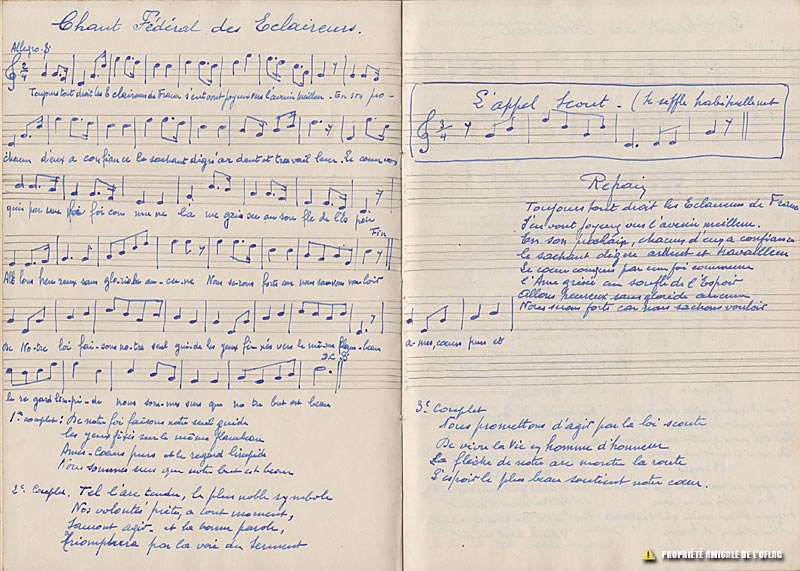 Chant Fédéral des Eclaireurs.
Allegro. 𝄋
3/4
Toujours tout droit les E claireurs de France s'en vont joyeux vers l'avenir meilleur - En son pro-
chain d'eux a confiance le sachant digne ar dent et travail leur. Le cœur con
quis par une foi com mu ne la me gri sée au souf fle de l'Es poir
Fin
Allé lons heu reux sans gloriole au-cu-ne Nous se-rons forts car nous sau-rons vouloir
De No-tre loi fai-sons no-tre seul gui-de les yeux fi-xés vers le même flam-beau
a-mes, cœurs purs et
D.C. 𝄋
le re gard lim-pi-de nous som-mes surs que no tre but est beau
1er couplet: De notre foi faisons notre seul guide
les yeux fixés sur le même flambeau
Ames-Cœurs purs et le regard limpide
Nous sommes surs que notre but est beau
2e Couplet. Tel l'arc tendu, le plus noble symbole
Nos volontés prêtes, a tout moment,
Sauront agir - et la bonne parole,
Triomphera par la voie du Serment
L'appel Scout - (Se siffle habituellement
3/4
Refrain
Toujours tout droit les Eclaireurs de France
S'en vont joyeux vers l'avenir meilleur.
En son prochain, chacun d'eux a confiance
le sachant digne ardent et travailleur
Le cœur conquis par une foi commune
L'Ame grisée au souffle de l'Espoir
Allons heureux sans gloriole aucune
Nous serons forts car nous sachons vouloir
3e Couplet
Nous promettons d'agir par la loi scoute
De vivre la Vie en homme d'honneur
La flèche de notre arc montre la route
L'espoir le plus beau soutient notre cœur.
PROPRIÉTÉ AMICALE DE L'OFLAG